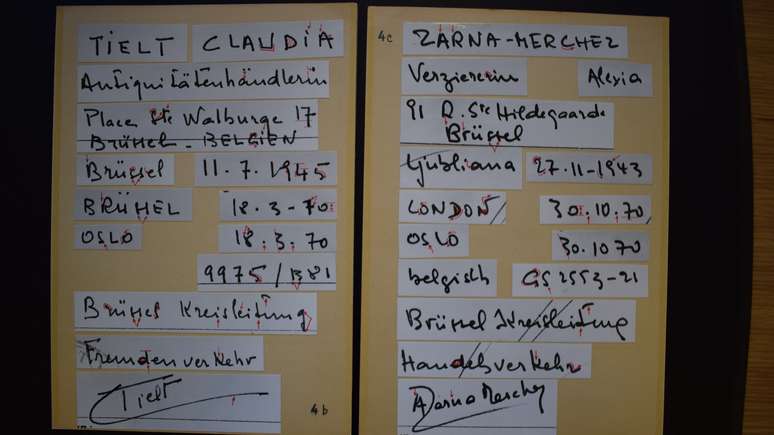 TIELT CLAUDIA
Antiquitätenhändlerin
Place Ste Walburge 17
BRÜSSEL - BELGIEN
Brüssel 11.7.1945
BRÜSSEL 18-3-70
OSLO 18.3.70
9975/B81
Brüssel Kreisleitung
Fremdenverkehr
Tielt
4b
4c
ZARNA-MERCHEZ
Verziererin Alexia
91 R. Ste Hildegaarde
Brüssel
Ljubliana 27-11-1943
LONDON 30.10.70
OSLO 30.10.70
belgisch GS 2553-21
Brüssel Kreisleitung
Handelsverkehr